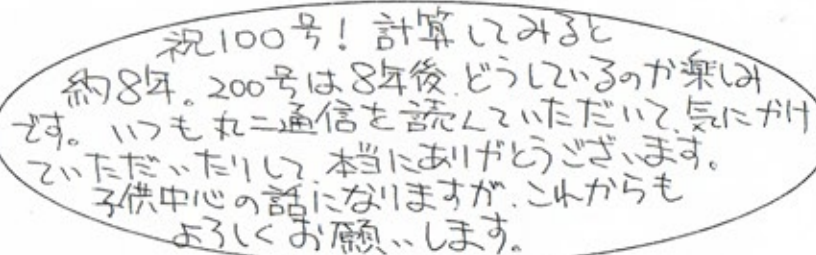 祝100号！計算してみると
約8年。200号は8年後、どうしているのか楽しみ
です。いつも丸二通信を読んでいただいて、気にかけ
ていただいたりして 本当にありがとうございます。
子供中心の話になりますが、これからも
よろしくお願いします。